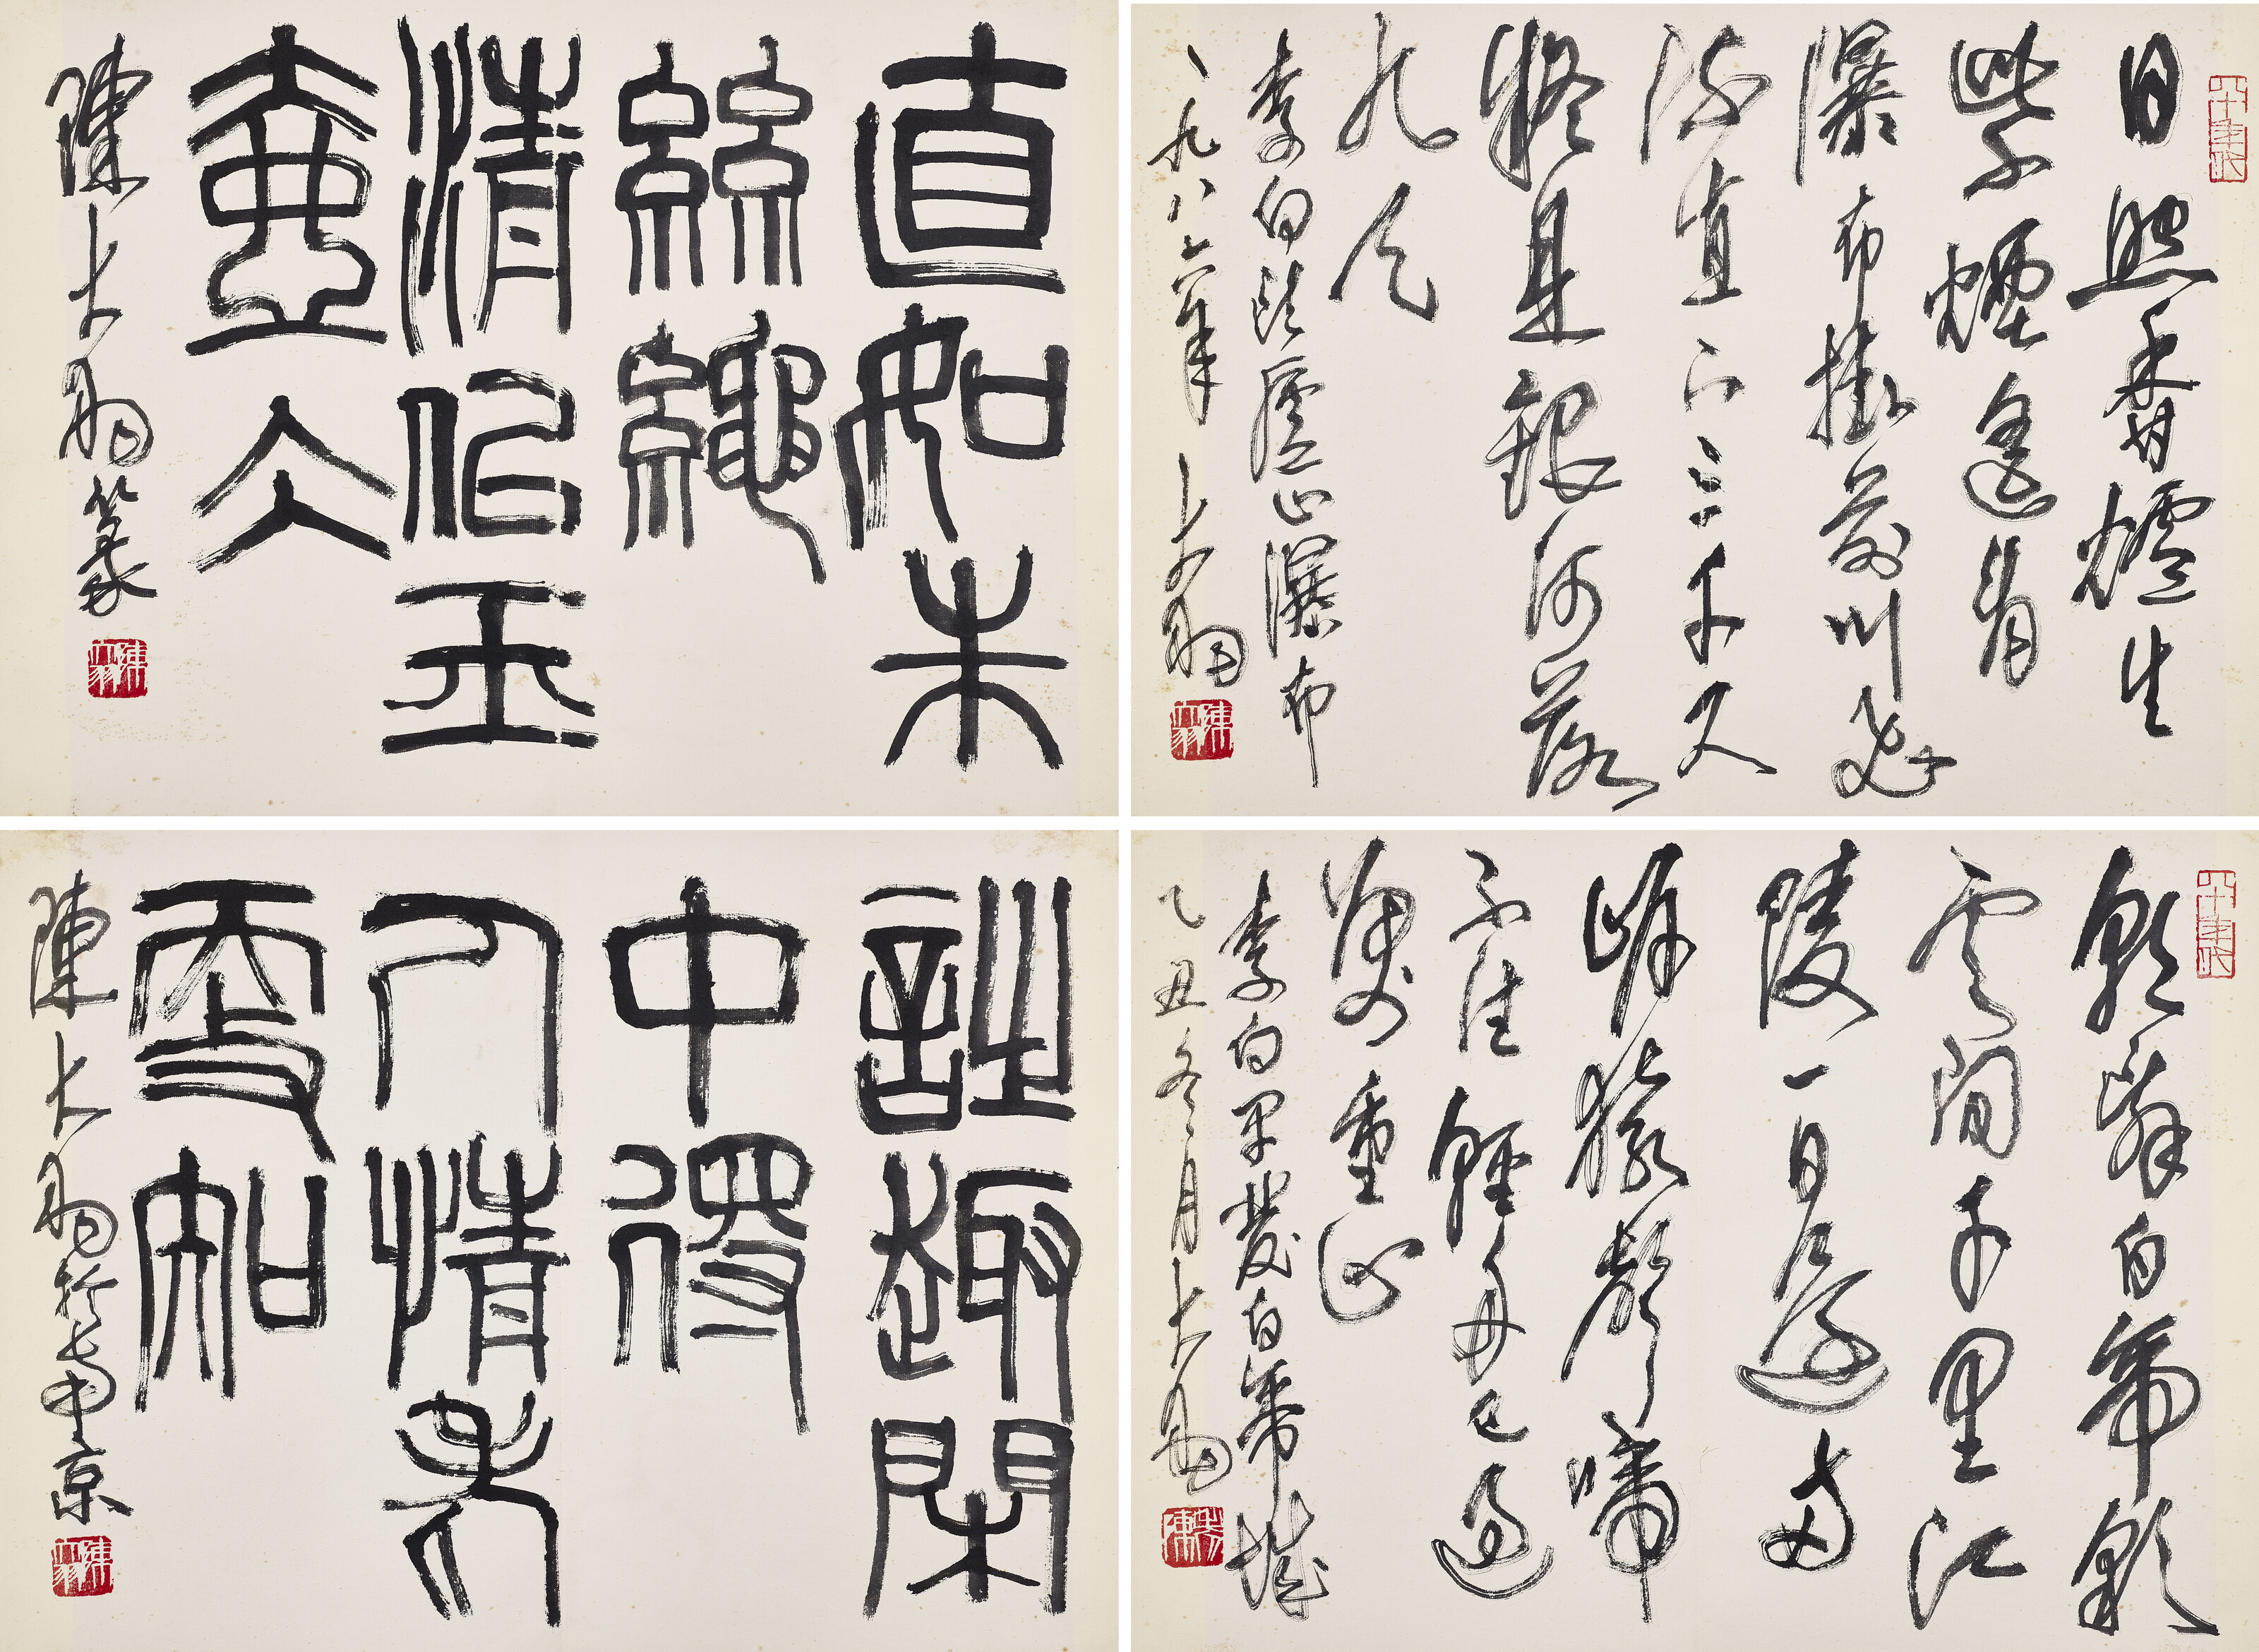 日照香爐生
紫煙遙看
瀑布掛前川飛
流直下三千尺
疑是銀河落
九天
李白詩廬山瀑布
一九八六年 大羽
直如朱
絲繩
清似玉
壺冰
陳大羽篆
朝辭白帝彩
雲間千里江
陵一日還兩
岸猿聲啼
不住輕舟已過
萬重山
李白早發白帝城
乙丑冬月大羽
詩趣閑
中得
人情老
更知
陳大羽於南京